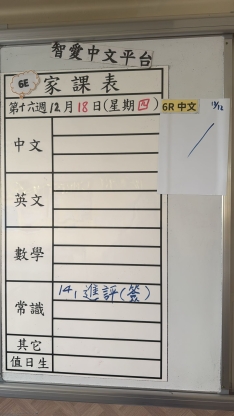 智愛中文平台
6E 家課表
第十六週12月18日(星期四)
6R中文 18/12
中文
英文
數學
常識 14, 進評(簽)
其它
值日生